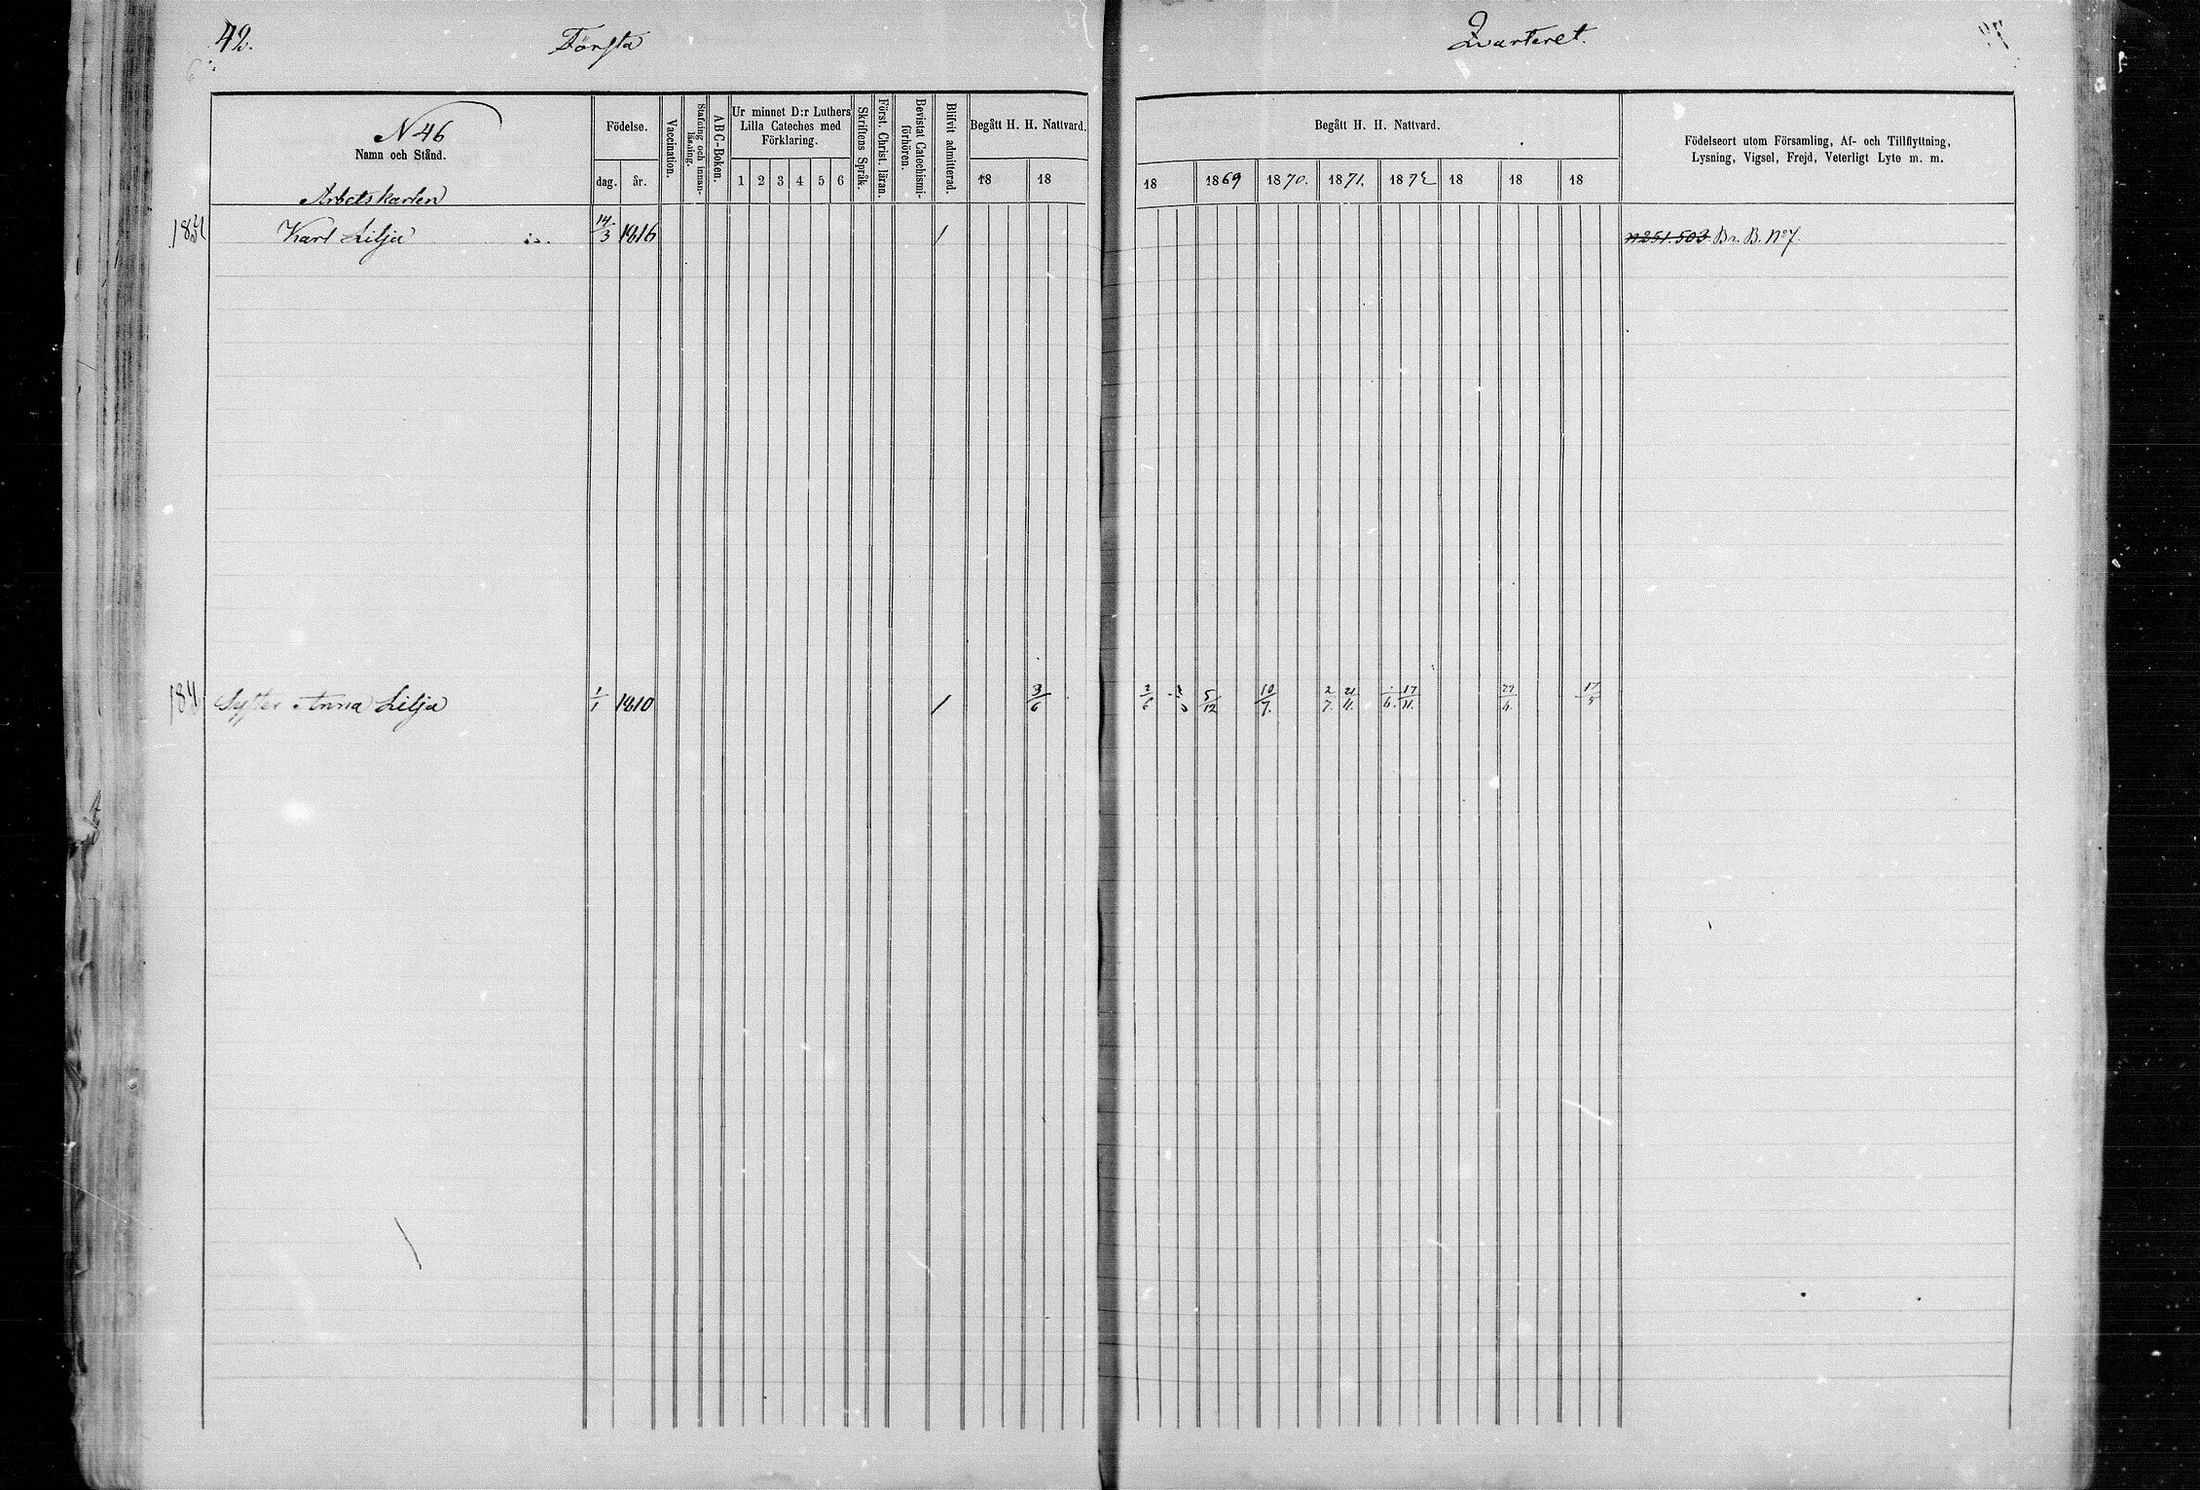 42.
Första
Qvarteret.
N 46
Namn och Stånd.
Födelse.
dag.
år.
Vaccination.
Stafning och innan-
läsning.
ABC-Boken.
Ur minnet D:r Luthers
Lilla Cateches med
Förklaring.
1 2 3 4 5 6
Skriftens Språk.
Först. Christ. läran.
Bevistat Catechismi-
förhören.
Blifvit admitterad.
Begått H. H. Nattvard.
18 18
Begått H. H. Nattvard.
18 1869 1870. 1871. 1872 18 18 18
Födelseort utom Församling, Af- och Tillflyttning,
Lysning, Vigsel, Frejd, Veterligt Lyte m. m.
Arbetskarlen
Karl Lilja 14/3 1816 / n 251.503 Br. B. No 7.
Syster Anna Lilja 1/1 1810 / 3/6 2/6 5/12 10/7. 2/7. 21/11. 17/11.